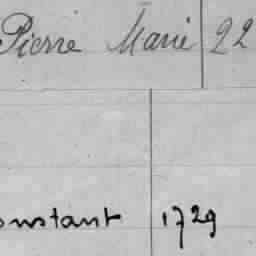 Pierre Marie 22
onstant 1729